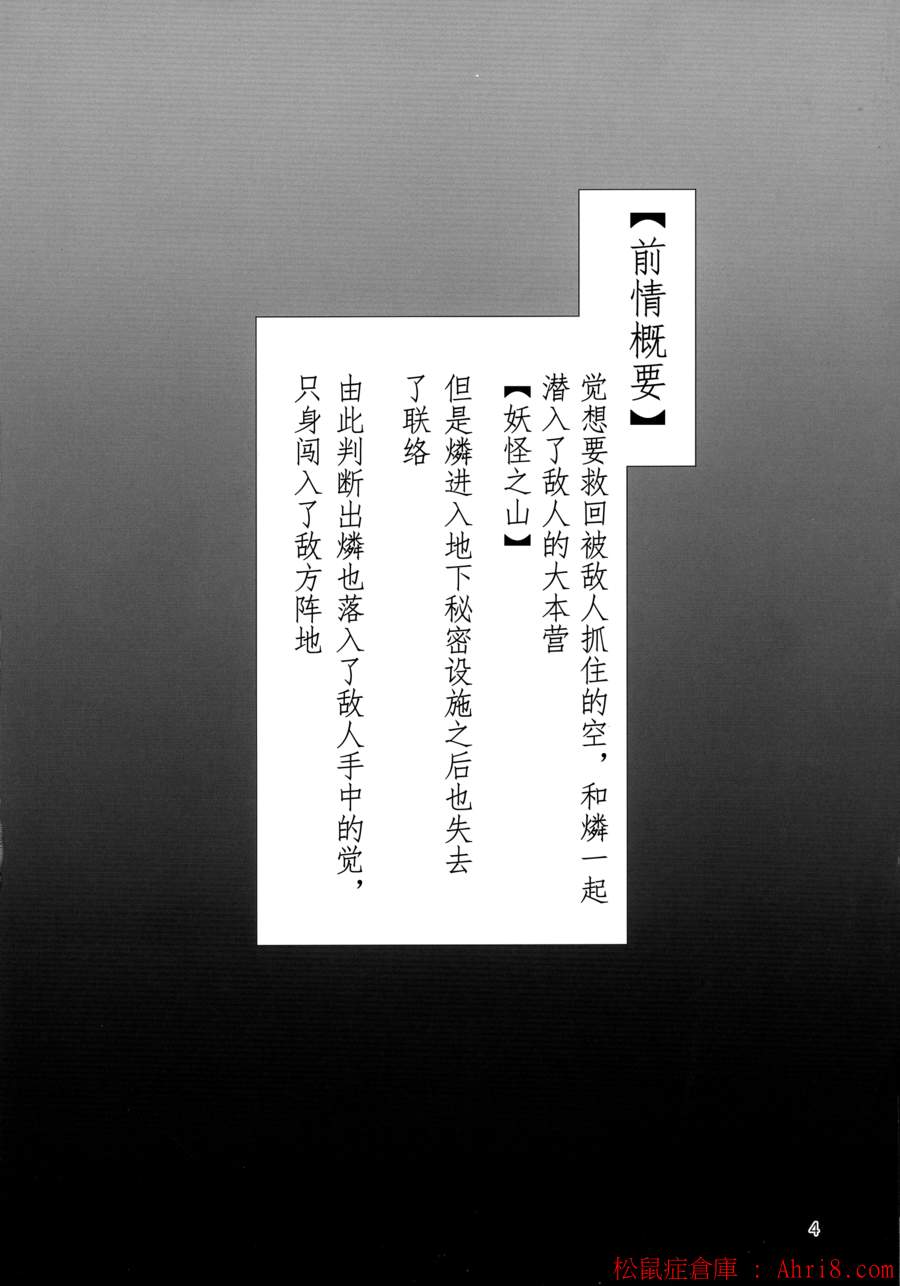 【前情概要】
觉想要救回被敌人抓住的空，和燐一起
潜入了敌人的大本营
【妖怪之山】
但是燐进入地下秘密设施之后也失去
了联络
由此判断出燐也落入了敌人手中的觉，
只身闯入了敌方阵地
4
松鼠症倉庫 : Ahri8.com